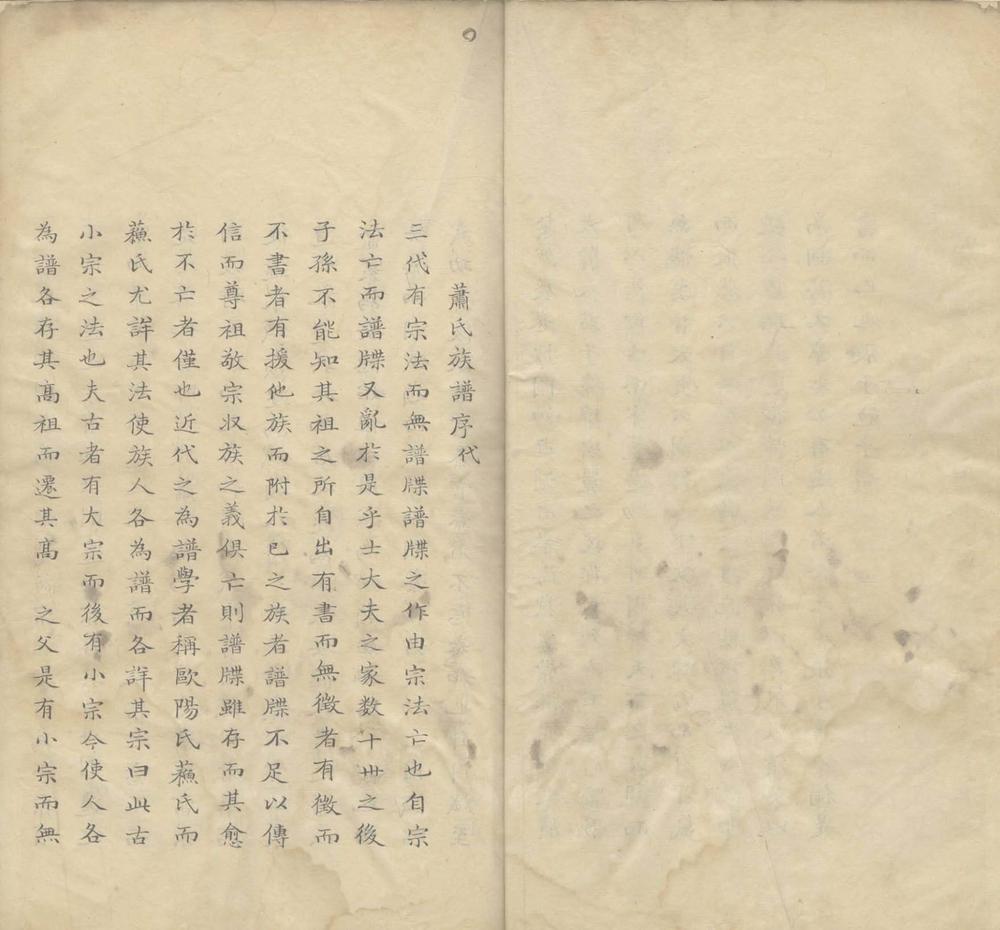 蕭氏族譜序代
三代有宗法而無譜牒譜牒之作由宗法亡也自宗
法亡而譜牒又亂於是乎士大夫之家数十丗之後
子孫不能知其祖之所自出有書而無徴者有徴而
不書者有援他族而附於已之族者譜牒不足以傳
信而尊祖敬宗収族之義俱亡則譜牒雖存而其愈
於不亡者僅也近代之為譜學者稱歐陽氏蘓氏而
蘓氏尤詳其法使族人各為譜而各詳其宗曰此古
小宗之法也夫古者有大宗而後有小宗今使人各
為譜各存其髙祖而遷其髙之父是有小宗而無